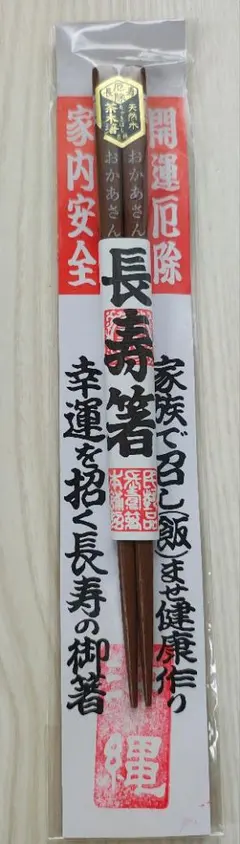 開運厄除
家内安全
長寿
厄除
天然木
茶木箸
おかあさん
おかあさん
長寿箸
家族で召し(飯)ませ健康作り
幸運を招く長寿の御箸
縄